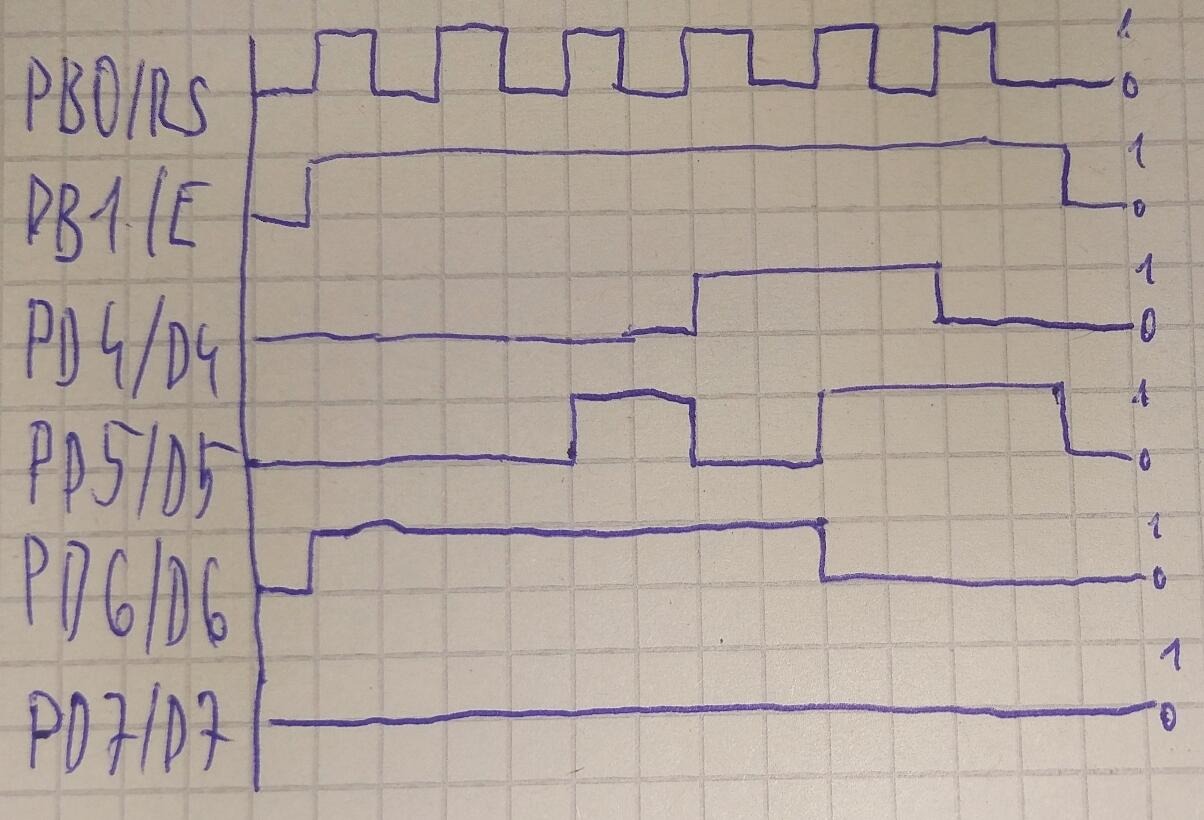 PB0/RS 1 0
PB1/E 1 0
PD4/D4 1 0
PD5/D5 1 0
PD6/D6 1 0
PD7/D7 1 0